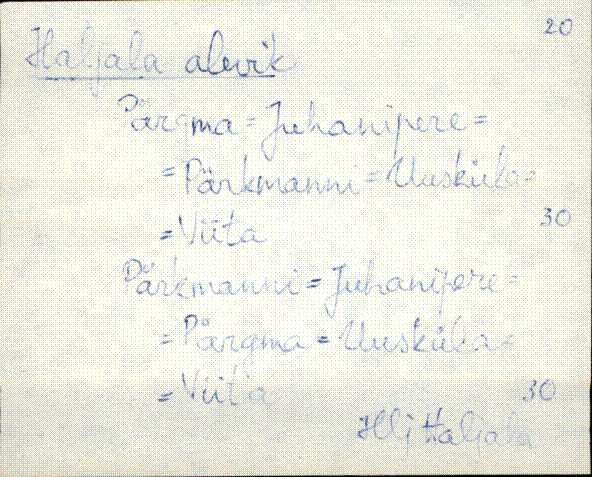 20
Haljala alevik
Pärgma = Juhanipere =
= Pärkmanni = Uusküla =
= Viita
30
Pärkmanni = Juhanipere =
= Pärgma = Uusküla =
= Viita
30
Hlj Haljala